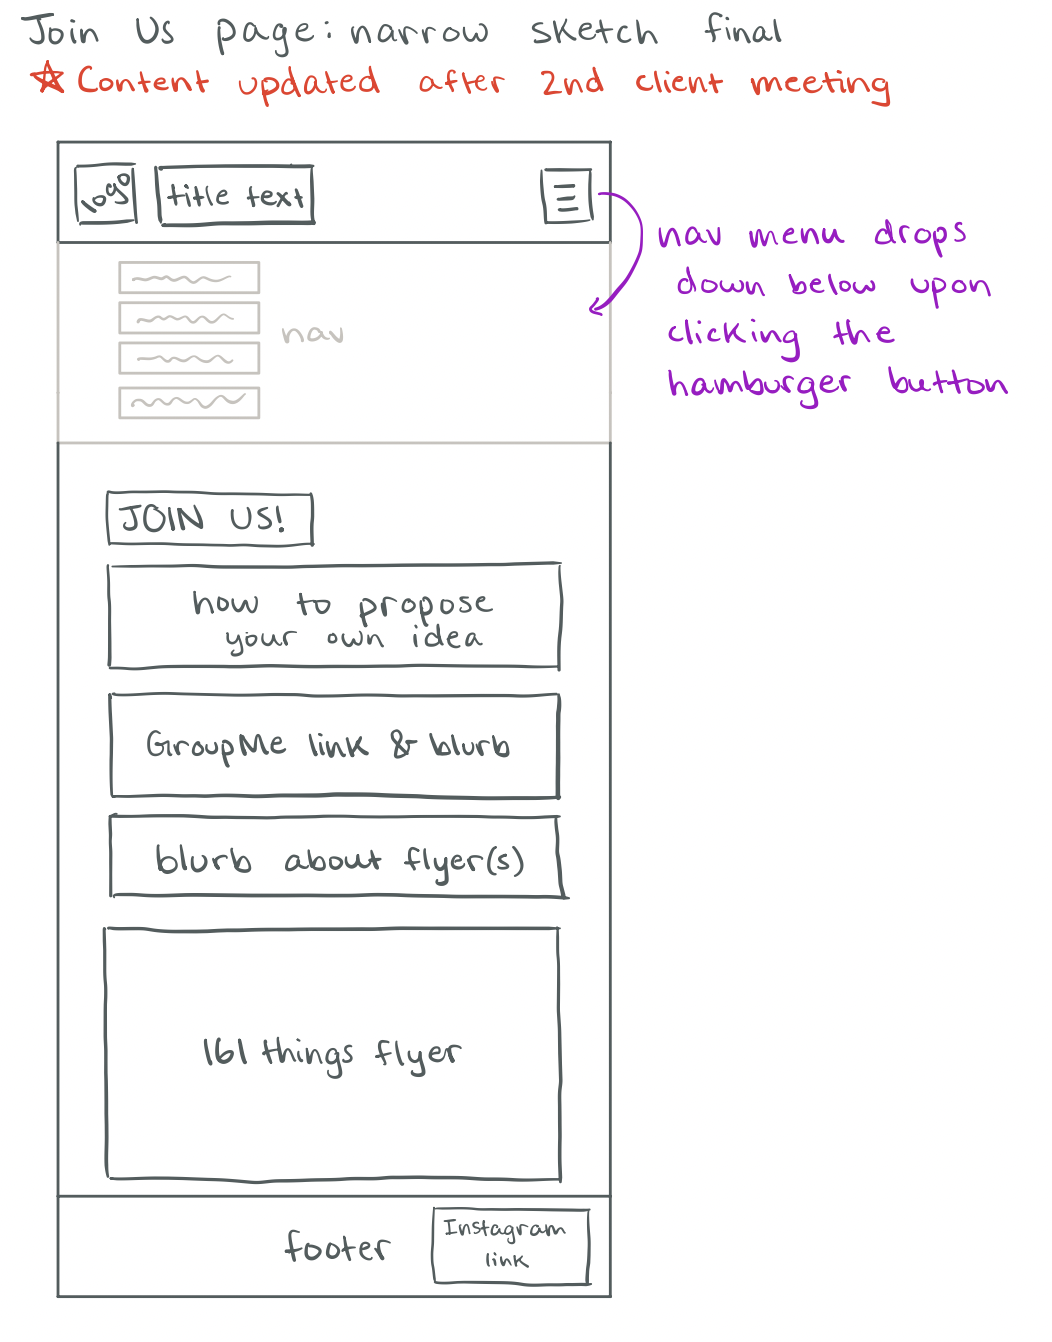 Join Us page: narrow sketch final
☆ Content updated after 2nd client meeting
logo
title text
nav menu drops
down below upon
clicking the
hamburger button
nav
JOIN US!
how to propose
your own idea
GroupMe link & blurb
blurb about flyer(s)
161 things flyer
footer
Instagram
link